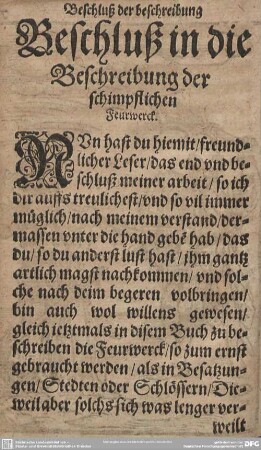 Beschluß der beschreibung
Beschluß in die
Beschreibung der
schimpflichen
Feurwerck.
NVn hast du hiemit/freund-
licher Leser/das end vnd be-
schluß meiner arbeit/so ich
dir auffs treulichest/vnd so vil immer
müglich/nach meinem verstand/der-
massen vnter die hand gebẽ hab/das
du/so du anderst lust hast/jhm gantz
artlich magst nachkommen/vnd sol-
che nach deim begeren volbringen/
bin auch wol willens gewesen/
gleich ietztmals in disem Buch zu be-
schreiben die Feurwerck/so zum ernst
gebraucht werden/als in Besatzun-
gen/Stedten oder Schlössern/Die-
weil aber solchs sich was lenger ver-
weilt